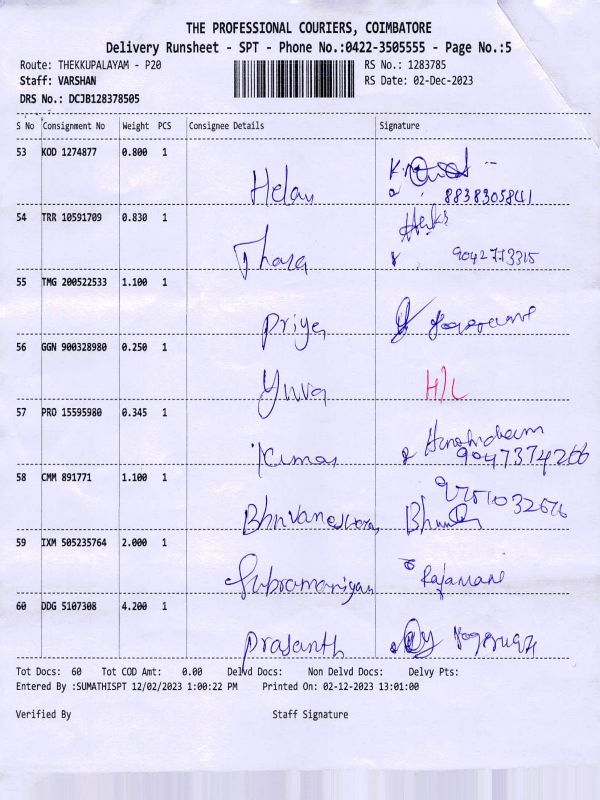 THE PROFESSIONAL COURIERS, COIMBATORE
Delivery Runsheet - SPT - Phone No.:0422-3505555 - Page No.:5
Route: THEKKUPALAYAM - P20 RS No.: 1283785
Staff: VARSHAN RS Date: 02-Dec-2023
DRS No.: DCJB128378505
S No Consignment No Weight PCS Consignee Details Signature
53 KOD 1274877 0.800 1
Helan 8838305841
54 TRR 10591709 0.830 1
Thara 9042773315
55 TMG 200522533 1.100 1
Priya
56 GGN 900328980 0.250 1
Yuva H/L
57 PRO 15595980 0.345 1
Kumar 9047374266
58 CMM 891771 1.100 1
Bhuvaneswari
59 IXM 505235764 2.000 1
Subramaniyan Rajamani
60 DDG 5107308 4.200 1
Prasanth
Tot Docs: 60 Tot COD Amt: 0.00 Delvd Docs: Non Delvd Docs: Delvy Pts:
Entered By :SUMATHISPT 12/02/2023 1:00:22 PM Printed On: 02-12-2023 13:01:00
Verified By Staff Signature